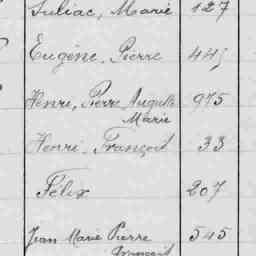 Juliac, Marie 127
Eugène, Pierre 445
Henri, Pierre Auguste 975
Marie
Henri François 33
Félix 207
Jean Marie Pierre 545
François